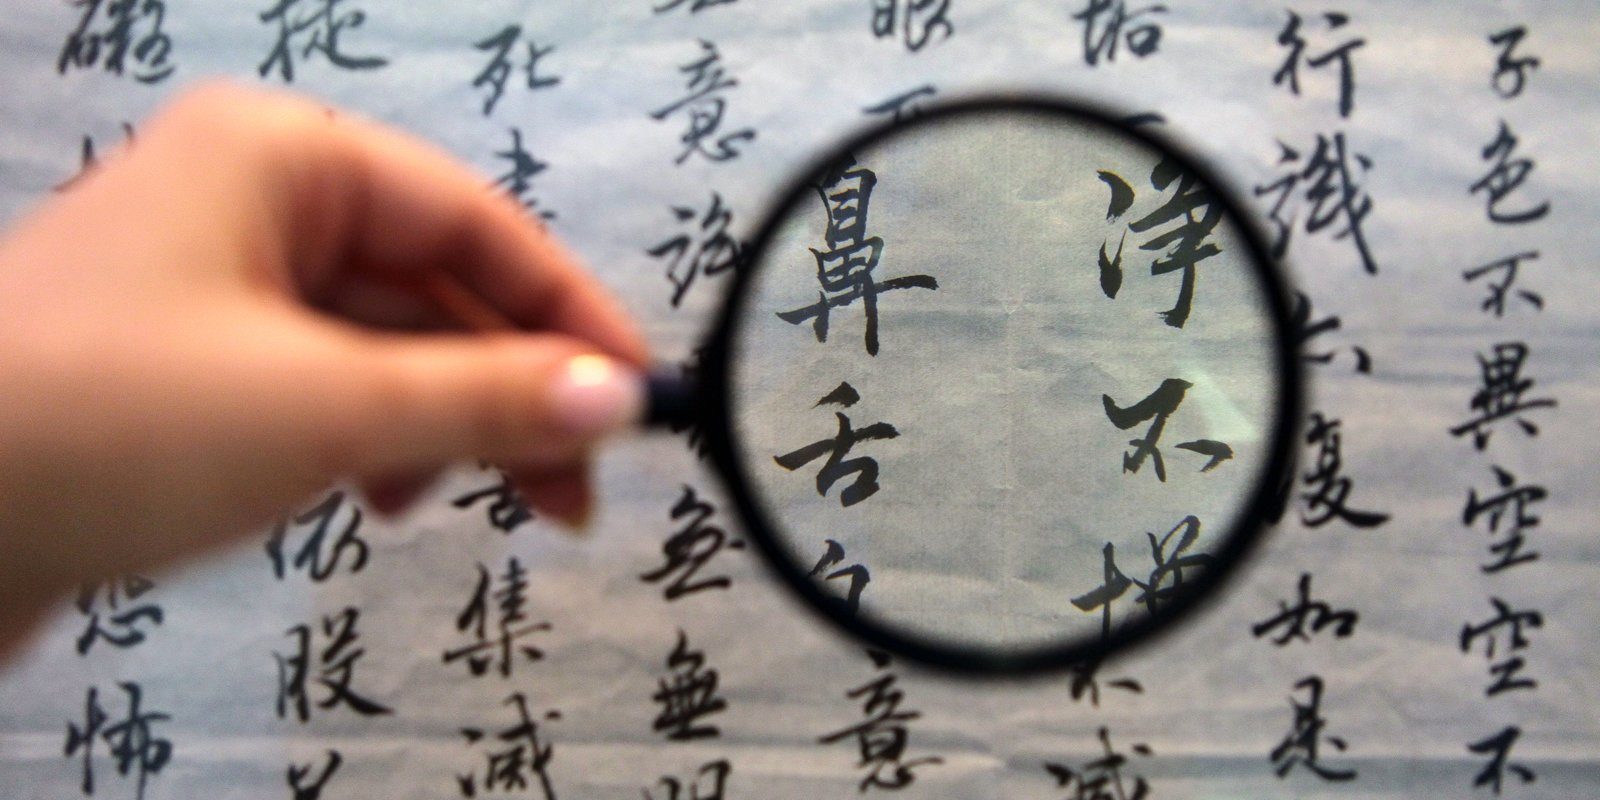 子色不異空空不
行識亦復如是
垢淨不增不減
眼鼻舌意
意識無無明
死盡苦集滅
提依般
礙恐怖